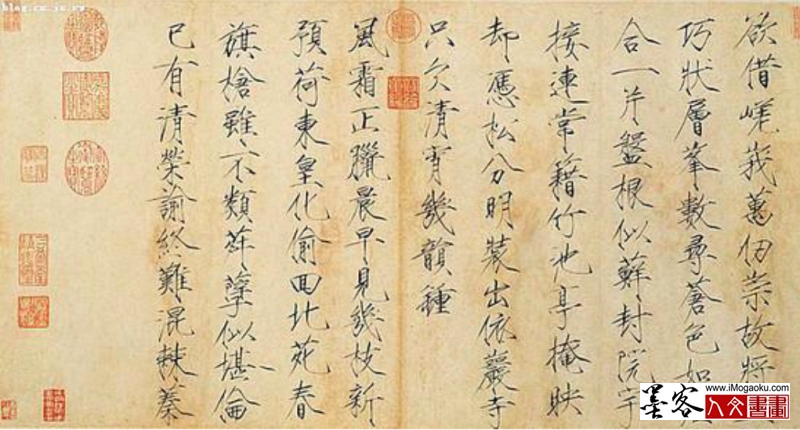 欲借嵯峩萬仞崇故將
巧狀層峯數尋蒼色如
合一片盤根似蘚封院宇
接連常籍竹池亭掩映
却憑松分明裝出依巖寺
只欠清宵幾韻鍾
風霜正臘晨早見幾枝新
預荷東皇化偷回北苑春
旗槍雖不類荈孽似堪倫
已有清榮諭終難混棘蓁
www.iMogaoku.com
墨客人文書畫